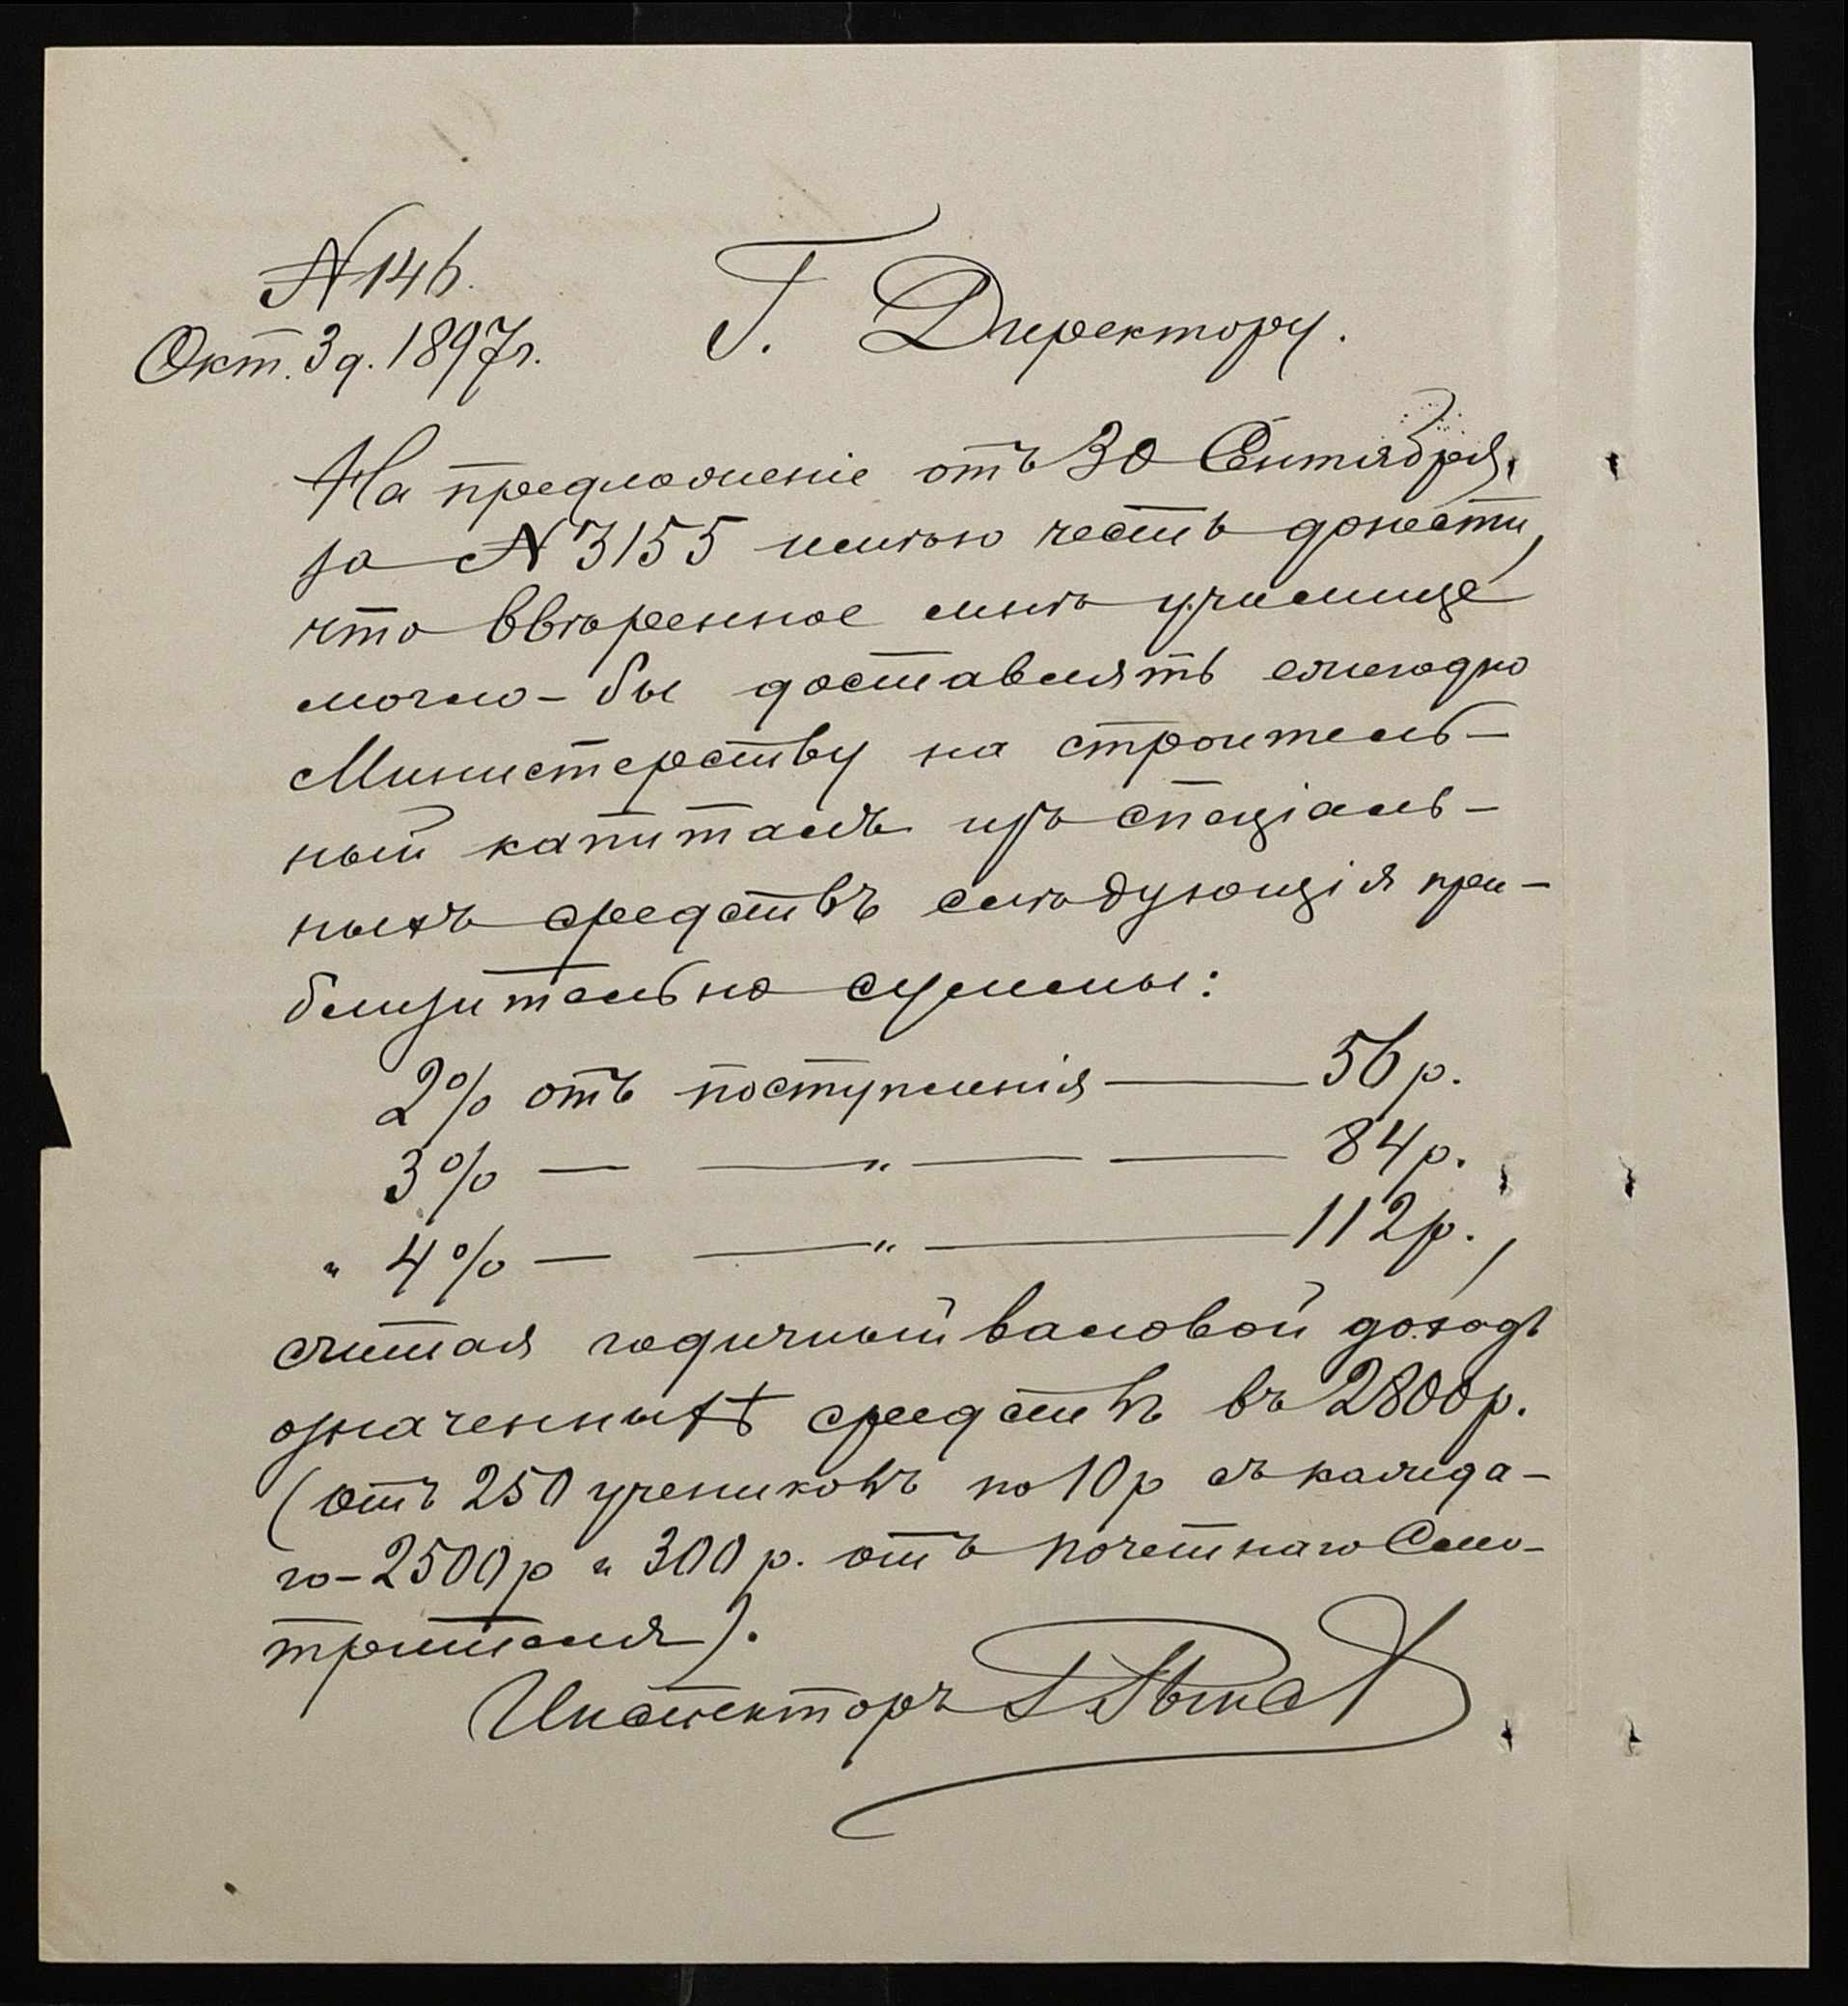 N 146.
Окт. 3 д. 1897 г.
Г. Директору.
На предложеніе отъ 30 Сентября,
за N 3155 имѣю честь донести,
что ввѣренное мнѣ училище
могло-бы доставлять ежегодно
Министерству на строитель-
ный капиталъ изъ спеціаль-
ныхъ средствъ слѣдующія при-
близительно суммы:
2% отъ поступленія — 56 р.
3% — — " — — 84 р.
" 4% — — " — 112 р.,
считая годичный валовой доходъ
означенныхъ средствъ въ 2800 р.
(отъ 250 учениковъ по 10 р съ кажда-
го - 2500 р и 300 р. отъ почетнаго Смо-
трителя).
Инспекторъ